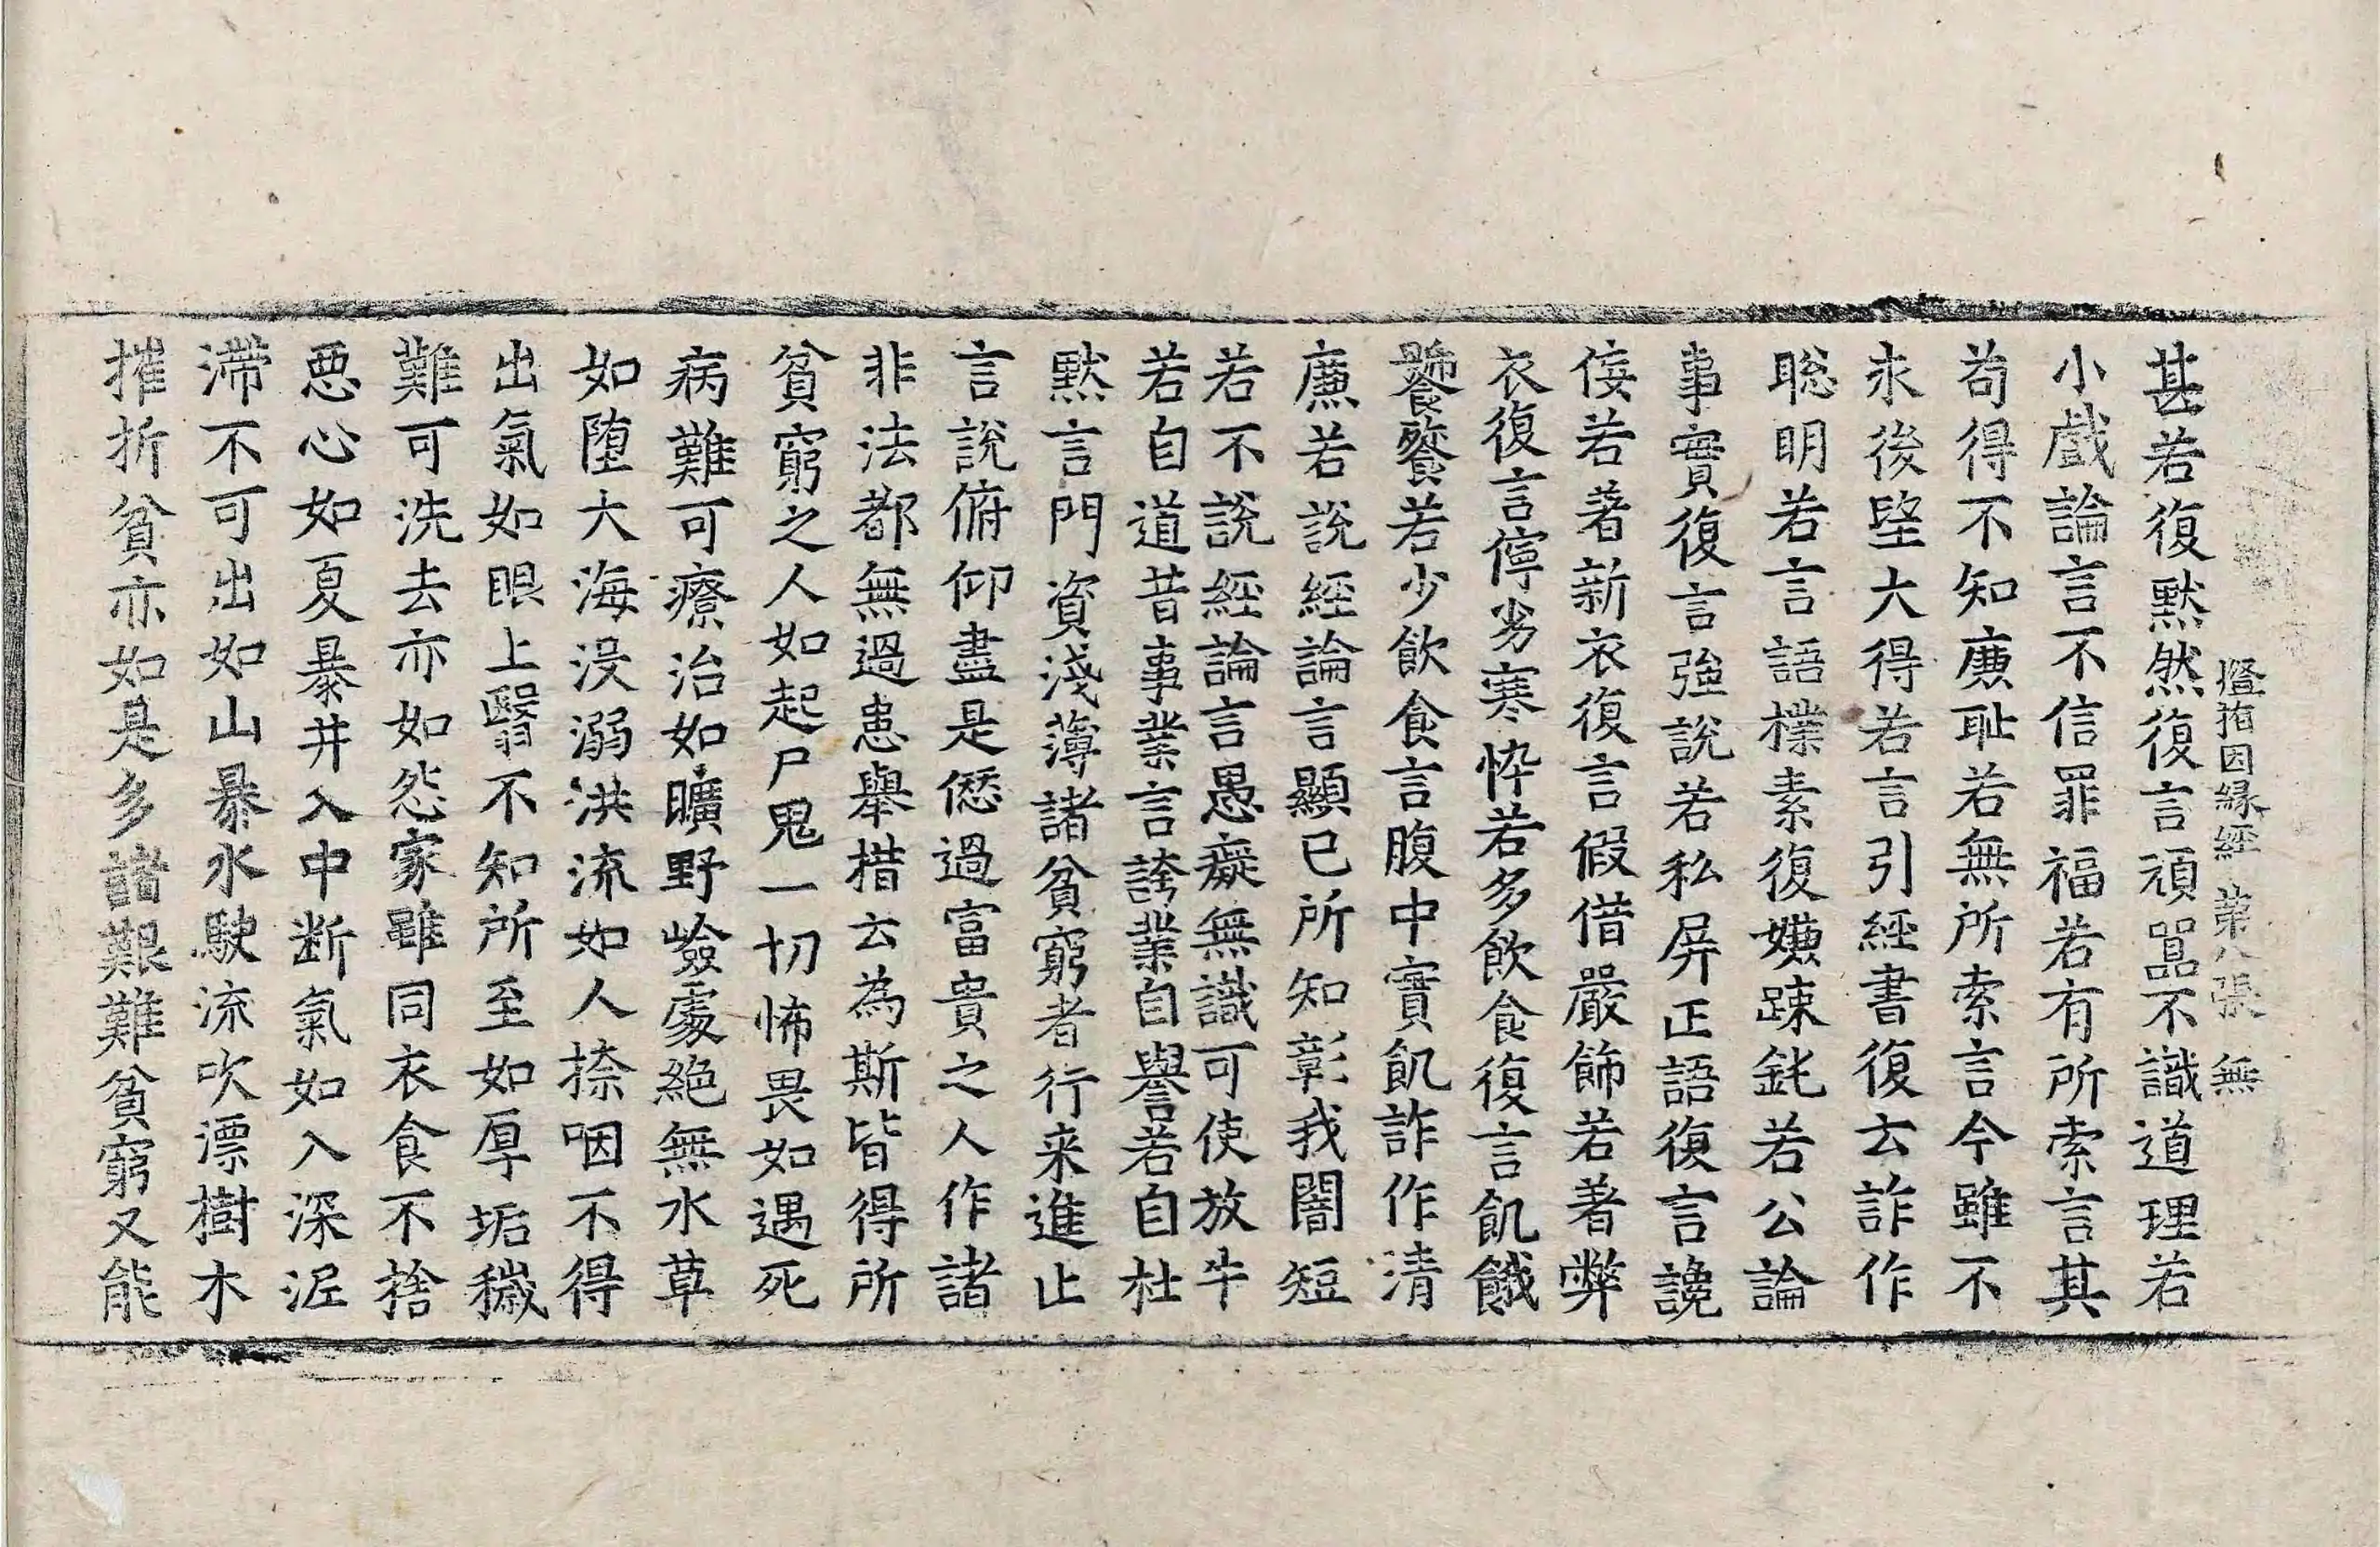 燈指因縁經 第八張 無
甚若復黙然復言頑嚚不識道理若
小戲論言不信罪福若有所索言其
苟得不知廉恥若無所索言今雖不
求後望大得若言引經書復云詐作
聡明若言語樸素復嫌踈鈍若公論
事實復言強說若私屏正語復言讒
侫若著新衣復言假借嚴飾若著弊
衣復言儜劣寒悴若多飲食復言飢餓
饕餮若少飲食言腹中實飢詐作清
廉若說經論言顯己所知彰我闇短
若不說經論言愚癡無識可使放牛
若自道昔事業言誇業自譽若自杜
黙言門資淺薄諸貧窮者行来進止
言說俯仰盡是愆過富貴之人作諸
非法都無過患舉措云為斯皆得所
貧窮之人如起尸鬼一切怖畏如遇死
病難可療治如曠野嶮處絕無水草
如堕大海没溺洪流如人捺咽不得
出氣如眼上瞖不知所至如厚垢穢
難可洗去亦如怨家雖同衣食不捨
惡心如夏暴井入中断氣如入深泥
滯不可出如山暴水駛流吹漂樹木
摧折貧亦如是多諸艱難貧窮又能